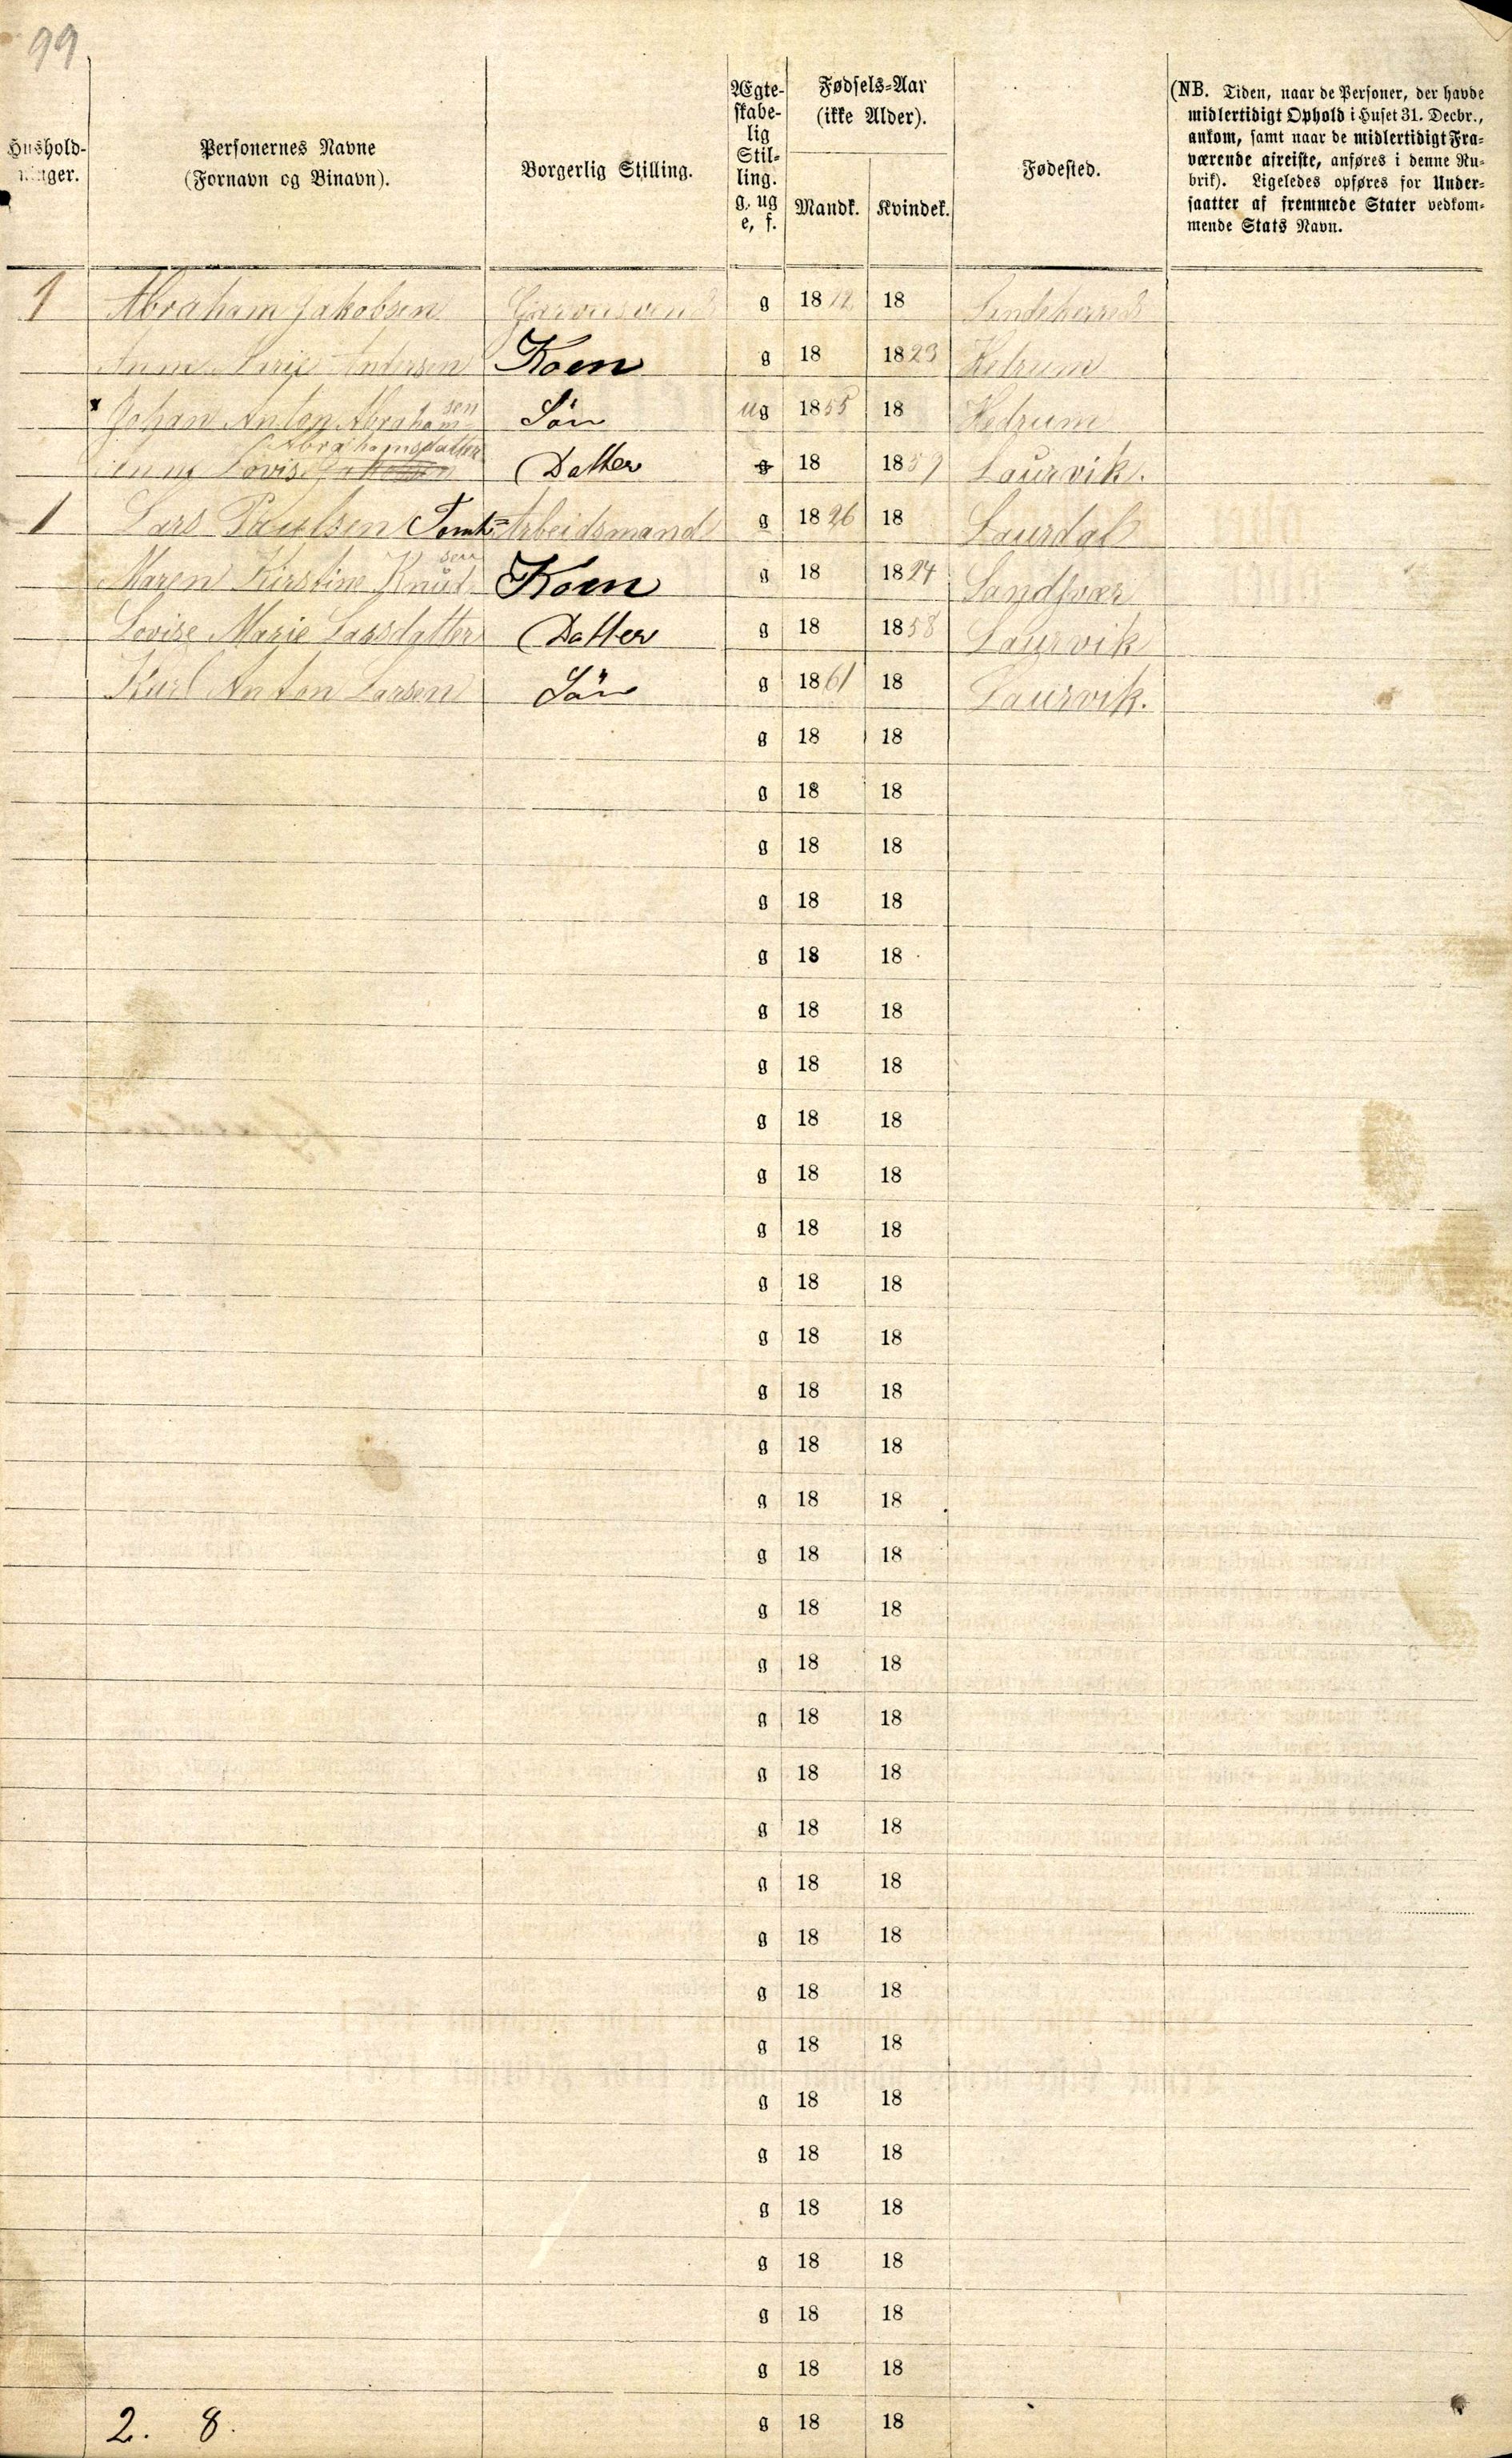 99
Hushold-
ninger.
Personernes Navne
(Fornavn og Binavn).
Borgerlig Stilling.
Ægte-
skabe-
lig
Stil-
ling.
g, ug
e, f.
Fødsels-Aar
(ikke Alder).
Mandk. Kvindek.
Fødested.
(NB. Tiden, naar de Personer, der havde
midlertidigt Ophold i Huset 31. Decbr.,
ankom, samt naar de midlertidigt Fra-
værende afreiste, anføres i denne Ru-
brik). Ligeledes opføres for Under-
saatter af fremmede Stater vedkom-
mende Stats Navn.
1 Abraham Jakobsen g 1812 18 Sandeherred
Anne Marie Andersen Koen g 18 1823 Hedrum
Johan Anton Abrahamsen Sön ug 1855 18 Hedrum
Abrahamsdatter
Lovise Datter g 18 1859 Laurvik.
1 Lars Paulsen Tomt= Arbeidsmand g 1826 18 Laurdal
Maren Kirstine Knudsen Koen g 18 1824 Sandsvær
Lovise Marie Larsdatter Datter g 18 1858 Laurvik
Karl Anton Larsen Sön g 1861 18 Laurvik.
g 18 18
g 18 18
g 18 18
g 18 18
g 18 18
g 18 18
g 18 18
g 18 18
g 18 18
g 18 18
g 18 18
g 18 18
g 18 18
g 18 18
g 18 18
g 18 18
g 18 18
g 18 18
g 18 18
g 18 18
g 18 18
g 18 18
g 18 18
g 18 18
g 18 18
g 18 18
g 18 18
g 18 18
g 18 18
g 18 18
g 18 18
2. 8. g 18 18